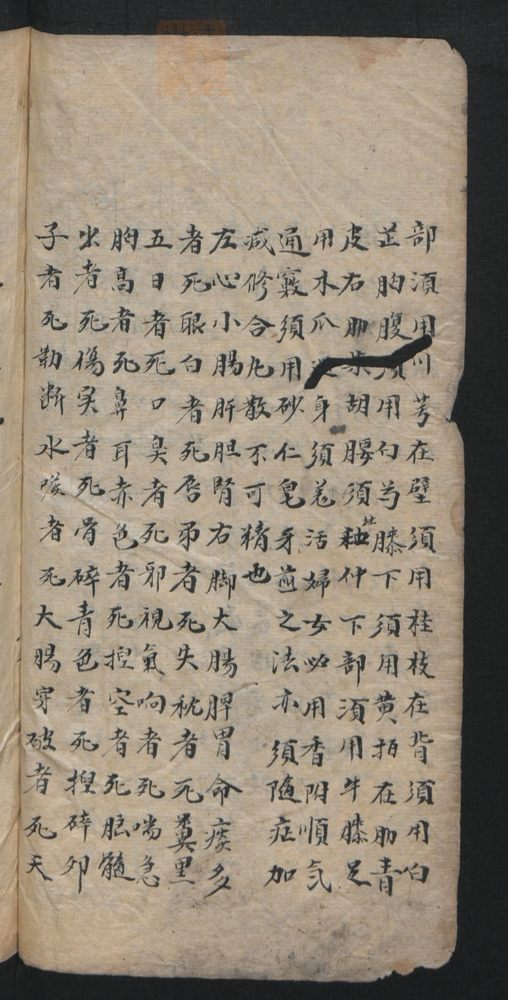 部須用川芎在壁須用桂枝在背須用白
芷胸腹須用白芍膝下須用黄柏在肋青
皮右肋柴胡腰須杜仲下部須用牛膝足
用木瓜身須羗活婦女必用香附順気
通竅須用砂仁皂牙煎之法亦須随症加
减修合凡散不可精也
左心小腸肝胆腎右脚大腸脾胃命痰多
者死眼白者死唇吊者死失秕者死糞黒
五日者死口臭者死邪視氣响者死喘急
胸高者死鼻耳赤色者死捏空者死脳髓
出者死傷実者死骨碎青色者死捏碎夘
子者死勒断水喉者死大腸穿破者死天